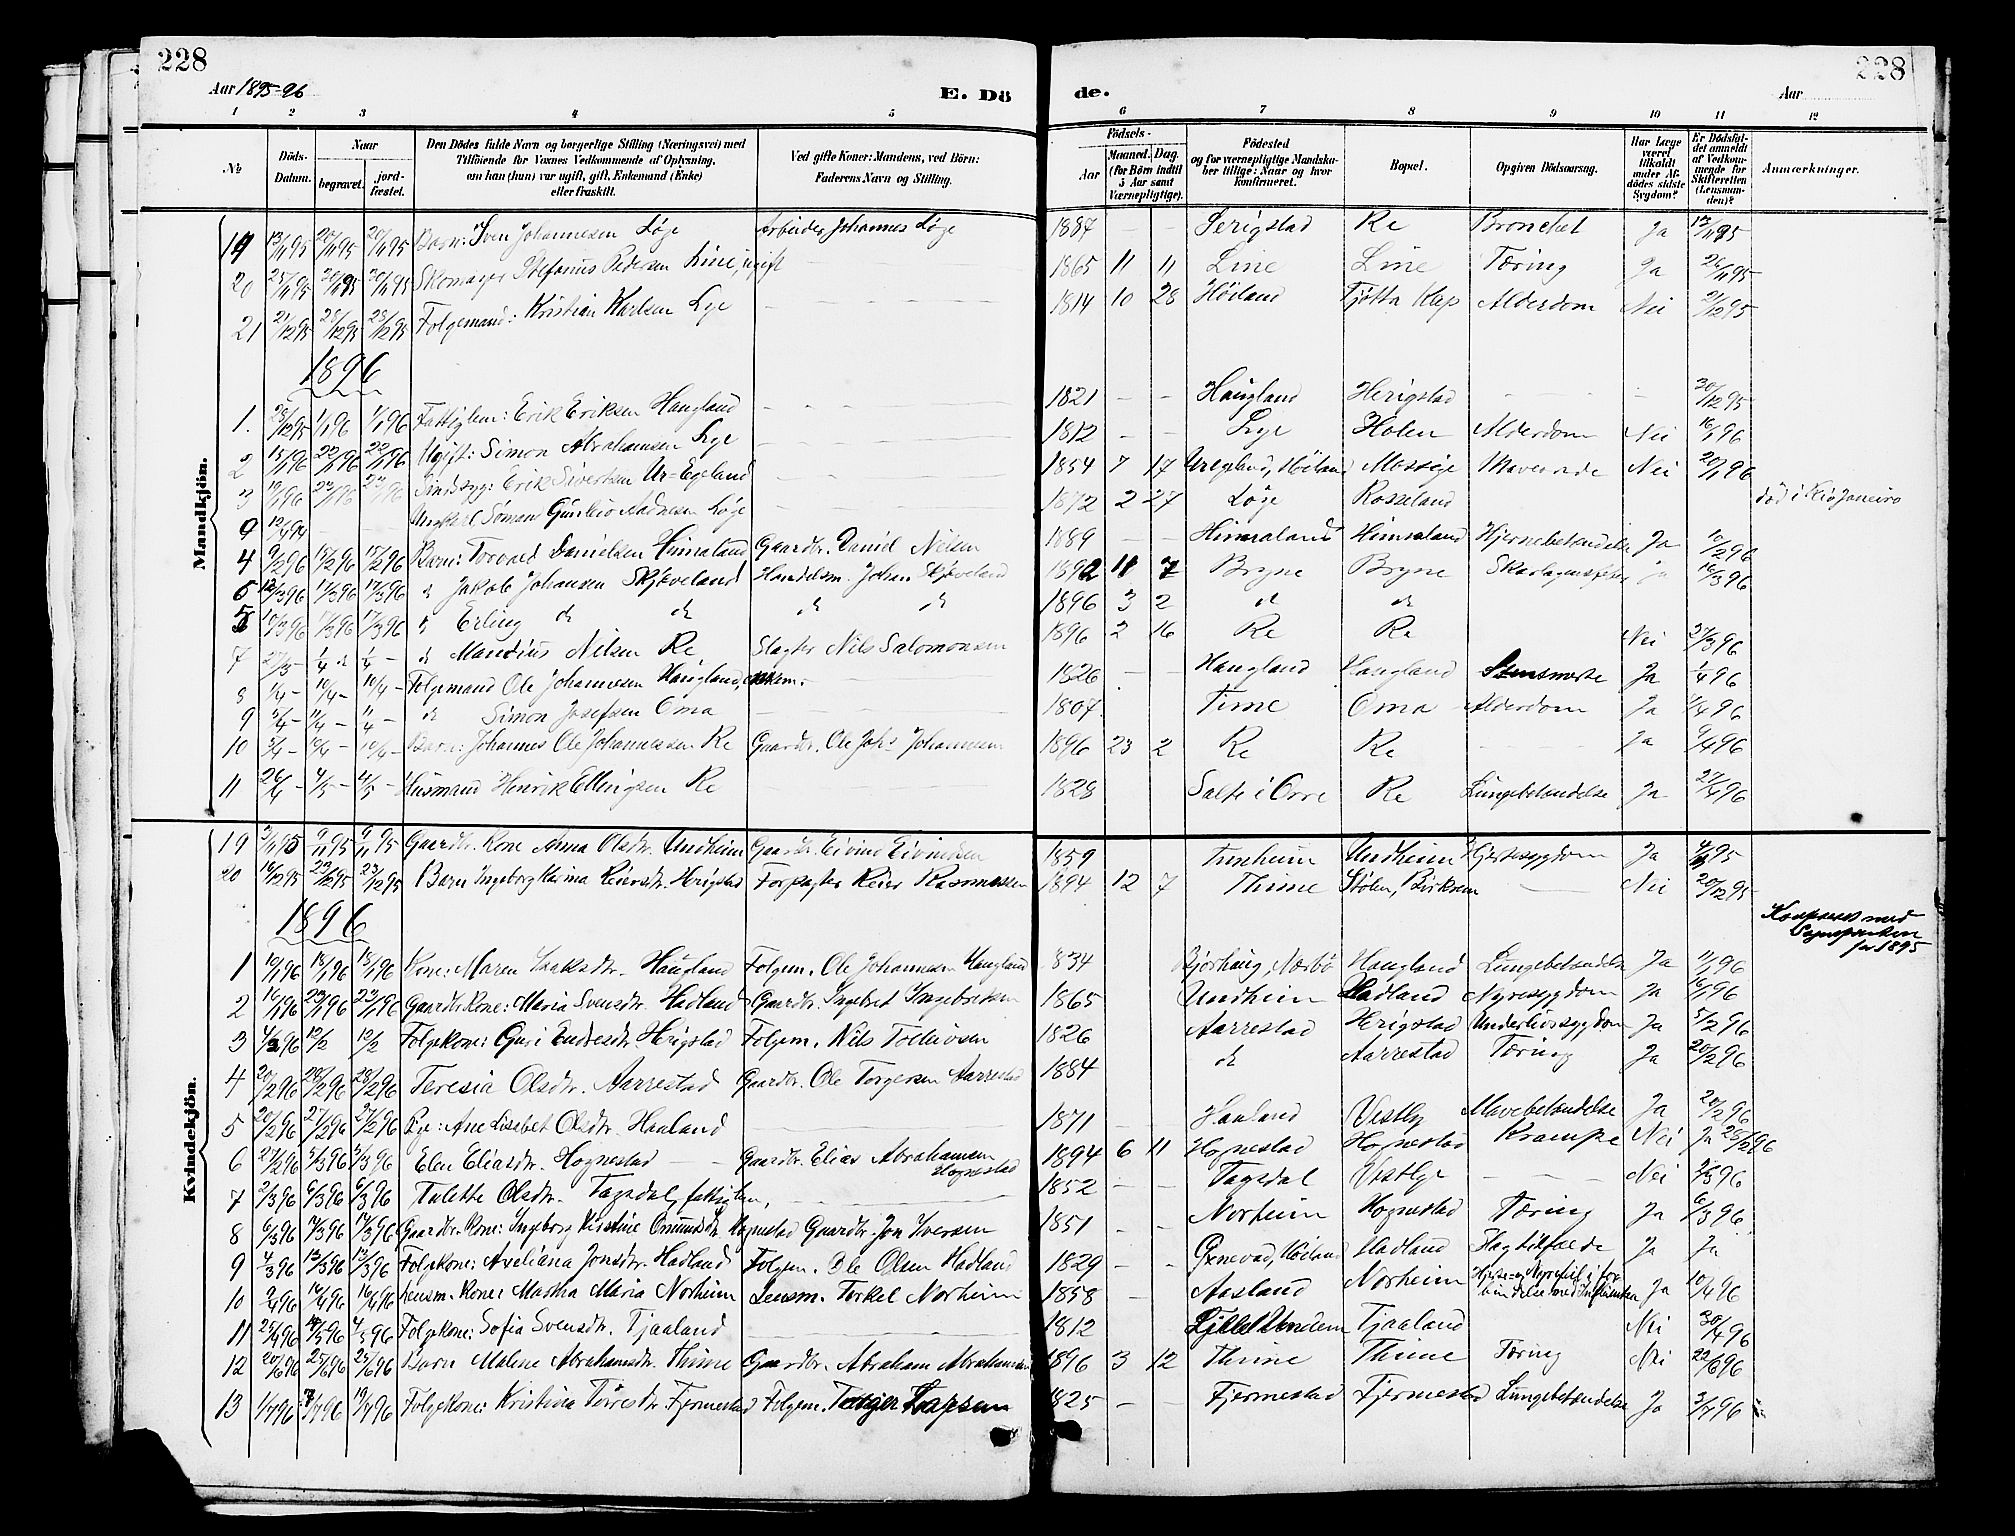 228
228
Aar 1895-96
E. Dö
de.
Aar
1 2 3 4 5 6 7 8 9 10 11 12
No
Döds-Datum.
Naar
begravet.
jord-fæstet.
Den Dödes fulde Navn og borgerlige Stilling (Næringsvei) med
Tilföiende for Voxnes Vedkommende af Oplysning,
om han (hun) var ugift, gift, Enkemand (Enke)
eller fraskilt.
Ved gifte Koner: Mandens, ved Börn:
Faderens Navn og Stilling.
Födsels-
Aar
Maaned. Dag.
(for Børn indtil 5 Aar samt Værnepligtige).
Födested
og for værnepligtige Mandskaber tillige: Naar og hvor konfirmeret.
Bopæl.
Opgiven Dödsaarsag.
Har Læge været tilkaldt under Afdödes sidste Sygdom?
Er Dödsfaldet anmeldt af Vedkommende for Skifteretten (Lensmanden)?
Anmærkninger.
Mandkjön.
19 13/11 95 20/11 95 20/11 95 Barn: Sven Johannesen Löge Arbeider Johannes Löge 1887 — — Serigstad Re Bronchit Ja
20 25/11 95 Skomager Stefanus Pedersen Line, ugift 1865 11 11 Line Line Tæring Ja 26/11 95
21 21/12 95 28/12 95 28/12 95 Folgemand: Kristian Karlsen Lye 1814 10 28 Höiland Tjötta Klep Alderdom Nei
1896
1. 28/12 95 1/1 96 1/1 96 Fattiglem: Erik Eriksen Haugland 1821 — — Haugland Herigstad 30/12 95
2 15/1 96 22/1 96 22/1 96 Ugift: Simon Abrahamsen Lye 1812 — — Lye Holen Alderdom Nei 16/1 96
3 19/1 96 Sindssyg: Erik Sivertsen Ur-Egeland 1854 7 17 Höiland Mossige Nei 20/1 96
9 12/4 94 Ungkarl Sömand Gunleiv Löge 1872 2 27 Löge Rosseland död i Rio Janeiro
4 9/2 96 15/2 96 15/2 96 Barn: Torvald Danielsen Himmaland Gaardbr. Daniel Nilsen 1889 — — Himmaland Himmaland Hjernebetændelse Ja 10/2 96
6 12/3 96 17/3 96 17/3 96 d Jakob Johansen Skjæveland Handelsm. Johan Skjæveland 1892 11 7 Bryne Bryne Skarlagensfeber ja 16/3 96
5 17/3 96 17/3 96 d Erling d d d d 1896 3 2 d d
7 27/3 - 1/4 d 1/4 - d Mandius Nilsen Re Slagter Nils Salomonsen 1896 2 16 Re Re Nei 27/3 96
8 1/4 - 10/4 - 10/4 - Folgemand Ole Johannesen Haugland, enkem. 1826 — — Haugland Haugland Ja 1/4 96
9 11/4 - 11/4 - d Simon Josefsen Oma 1807 Time Oma Alderdom Ja
10 10/4 - Barn: Johannes Ole Johannessen Re Gaardbr. Ole Johs Johannesen 1896 23 2 Re Re Ja 9/4 96
11 26/4 - 4/5 - 4/5 - Husmand Henrik Ellingsen Re 1828 Salte i Orre Re Lungebetændelse Ja 27/4 96
Kvindekjön.
19 3/11 95 9/11 95 9/11 95 Gaardbr. Kone Anna Olsdtr. Undheim Gaardbr. Eivind Eivindsen 1859 Tunheim Undheim Hjertesygdom Ja
20 16/12 95 23/12 95 23/12 95 Barn Ingeborg Karina Reiersdtr. Herigstad Forpagter Reier Rasmussen 1894 12 7 Thime Stölen, Birkrem Nei 20/12 95
1896
for 1895
1 10/1 96 18/1 96 18/1 96 Kone: Maren Isaksdtr. Haugland Folgem. Ole Johannesen Haugland 1834 Bjorhaug, Nærbö Haugland Lungebetændelse Ja 11/1 96
2 16/1 96 23/1 96 23/1 96 Gaardbr. Kone: Maria Svensdtr. Hadland Gaardbr. Ingebret Ingebretsen 1865 Undheim Hadland Nyresygdom Ja 16/1 96
3 4/2 96 12/2 12/2 Folgekone: Guri Endresdtr. Herigstad Folgem. Nils Tolleivsen 1826 Aarrestad Herigstad Underlivssygdom Ja 5/2 96
4 20/2 96 28/2 96 28/2 96 Teresia Olsdtr. Aarrestad Gaardbr. Ole Torgersen Aarrestad 1884 d Aarrestad Tæring Ja 20/2 96
5 20/2 96 27/2 96 27/2 96 Pige: Ane Lisebet Olsdtr. Haaland 1871 — Haaland Vestly Mavebetændelse Ja 20/2 96
6 27/2 96 5/3 96 5/3 96 Elen Eliasdtr. Hognestad Gaardbr. Elias Abrahamsen Hognestad 1894 6 11 Hognestad Hognestad Krampe Nei Ja 28/2 96
7 2/3 96 6/3 96 6/3 96 Talette Olsdtr. Tagsdal, fattiglem, 1852 — — Tagsdal Vestlye Nei
8 6/3 96 17/3 96 17/3 96 Gaardbr. Kone: Ingeborg Kristine Omundsdtr. Hognestad Gaardbr. Jon Iversen 1851 — — Norheim Hognestad Tæring Ja 6/3 96
9 4/3 96 13/3 96 13/3 96 Folgekone: Axeliana Jonsdtr. Hadland Folgem. Ole Olsen Hadland 1829 — Höiland Hadland Slagtilfælde Ja Ja
10 9/4 96 16/4 96 16/4 96 Lensm. Kone: Martha Maria Norheim Lensm. Torkel Norheim 1858 — Aasland Norheim Hjerte- og Nyrefeil i forbindelse med Influentsa Ja 10/4 96
11 25/4 96 4/5 96 Folgekone: Sofia Svensdtr. Tjaaland 1812 Tjaaland Nei 30/4 96
12 20/6 96 25/6 96 25/6 96 Barn Malene Abrahamsdtr. Thime Gaardbr. Abraham Abrahamsen 1896 3 12 Thime Thime Tæring Nei 22/6 96
13 1/7 96 19/7 96 Folgekone: Kristina Törresdtr. Fjermestad Folgem. 1825 — — Fjermestad Fjermestad Lungebetændelse Ja 3/7 96